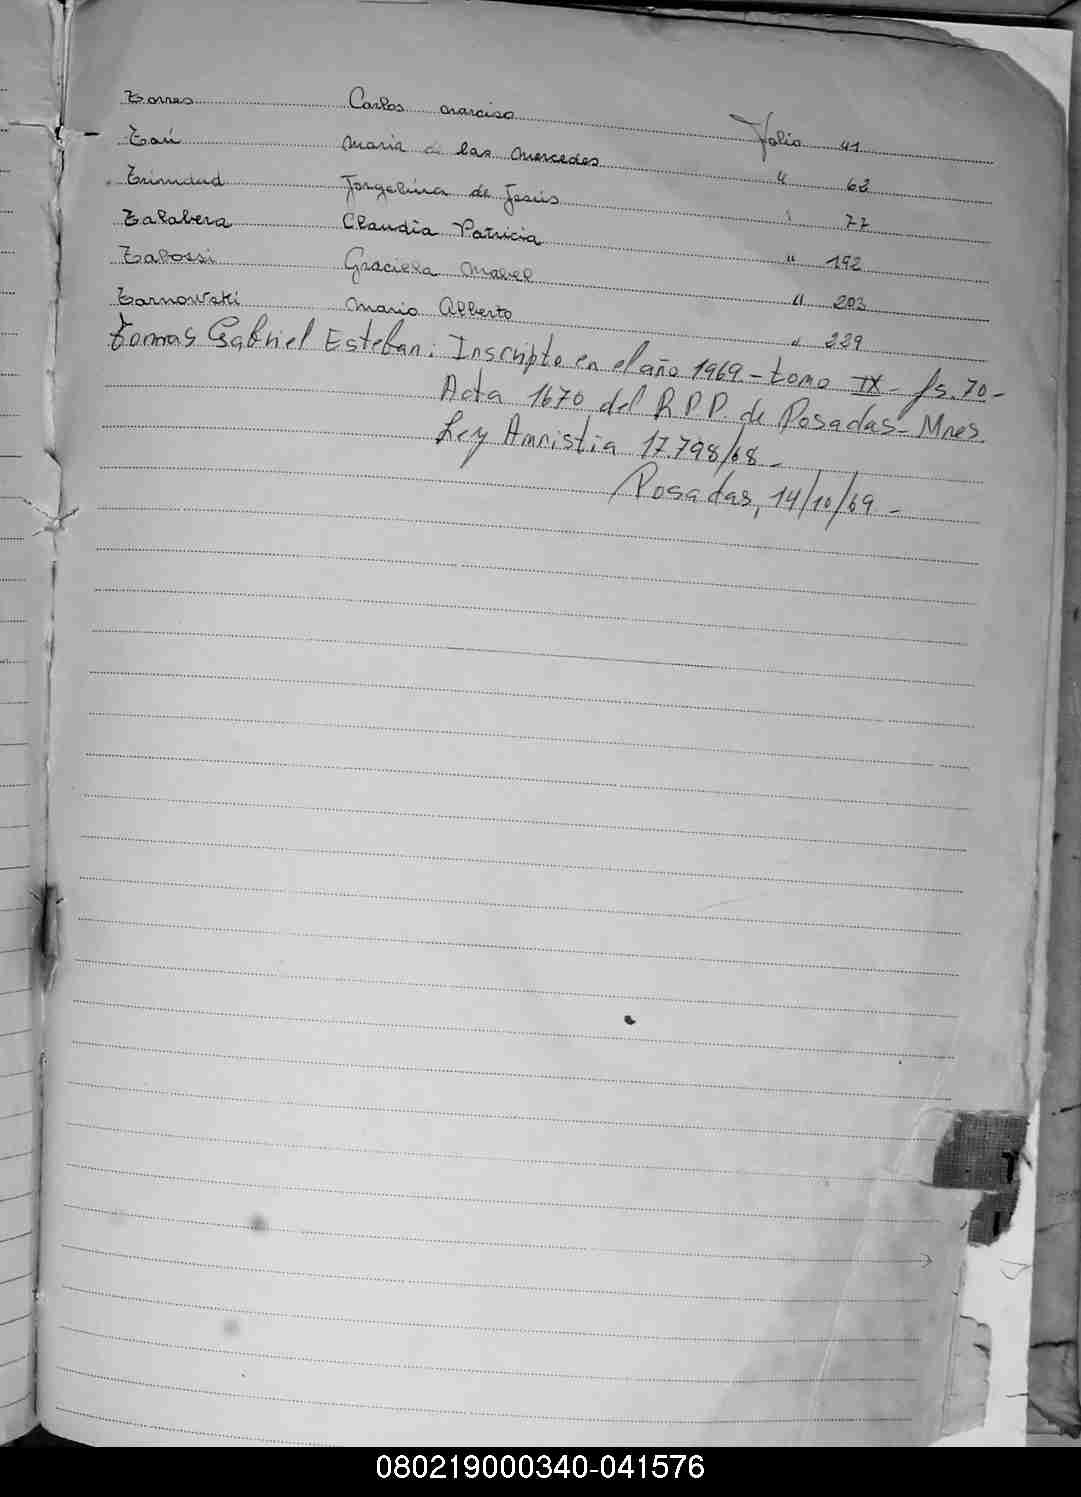 Torres Carlos Narciso Folio 41
Taú Maria de las Mercedes " 62
Trinidad Jorgelina de Jesús " 77
Talabera Claudia Patricia " 192
Tabossi Graciela Mabel " 203
Tarnowski Mario Alberto " 229
Tomas Gabriel Esteban: Inscripto en el año 1969.- tomo IX- fs. 70-
Acta 1670 del R.P.P. de Posadas- Mnes.
Ley Amnistia 17.798/68-
Posadas, 14/10/69-
T
080219000340-041576